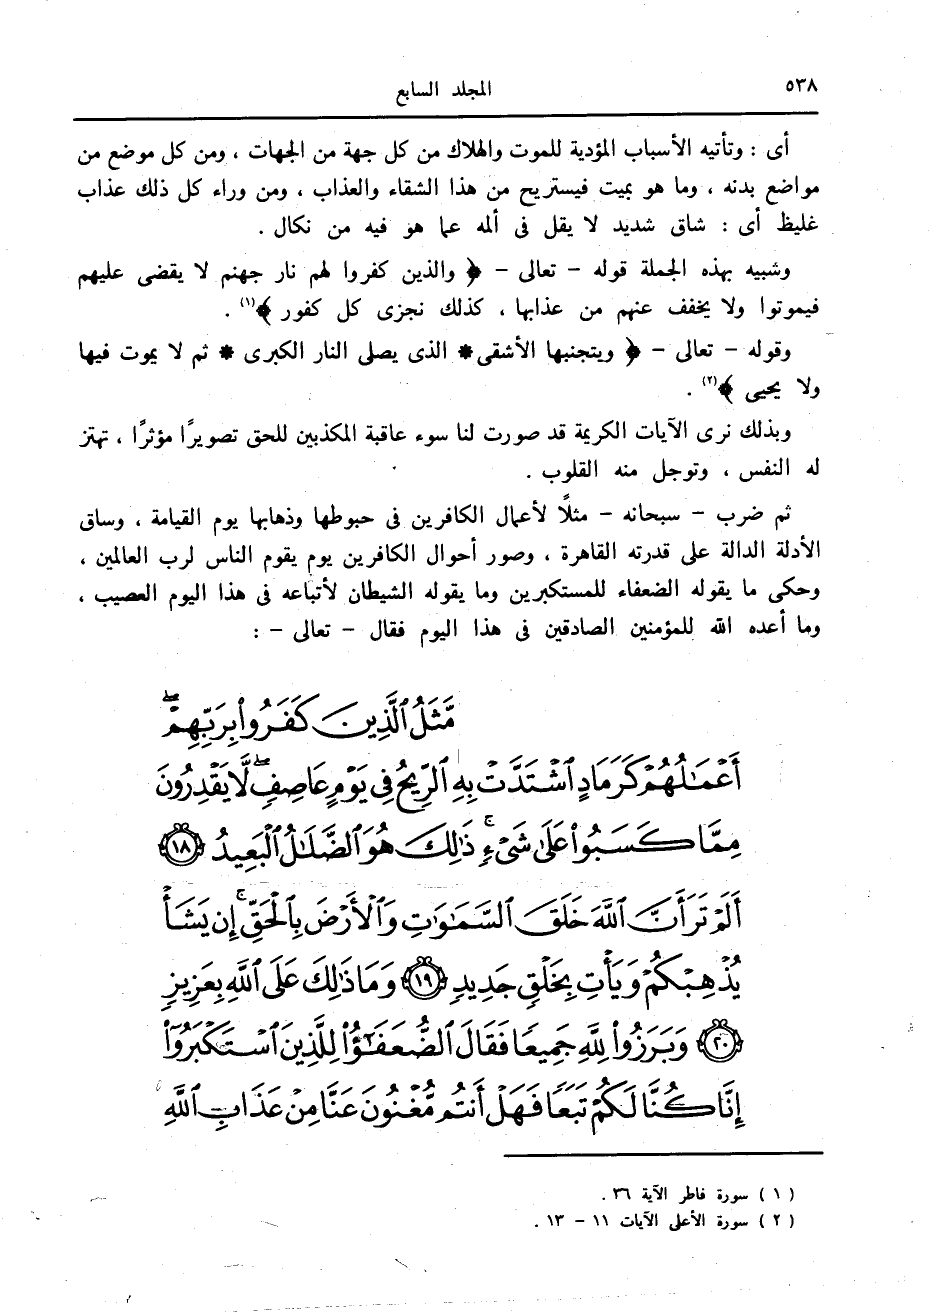 ٥٣٨
المجلد السابع
أى : وتأتيه الأسباب المؤدية للموت والهلاك من كل جهة من الجهات ، ومن كل موضع من
مواضع بدنه ، وما هو بميت فيستريح من هذا الشقاء والعذاب ، ومن وراء كل ذلك عذاب
غليظ أى : شاق شديد لا يقل فى ألمه عما هو فيه من نكال .
وشبيه بهذه الجملة قوله - تعالى - ﴿ والذين كفروا لهم نار جهنم لا يقضى عليهم
فيموتوا ولا يخفف عنهم من عذابها ، كذلك نجزى كل كفور ﴾(١) .
وقوله - تعالى - ﴿ ويتجنبها الأشقى * الذى يصلى النار الكبرى * ثم لا يموت فيها
ولا يحيى ﴾(٢) .
وبذلك نرى الآيات الكريمة قد صورت لنا سوء عاقبة المكذبين للحق تصويرًا مؤثرًا ، تهتز
له النفس ، وتوجل منه القلوب .
ثم ضرب - سبحانه - مثلًا لأعمال الكافرين فى حبوطها وذهابها يوم القيامة ، وساق
الأدلة الدالة على قدرته القاهرة ، وصور أحوال الكافرين يوم يقوم الناس لرب العالمين ،
وحكى ما يقوله الضعفاء للمستكبرين وما يقوله الشيطان لأتباعه فى هذا اليوم العصيب ،
وما أعده الله للمؤمنين الصادقين فى هذا اليوم فقال - تعالى - :
مَّثَلُ ٱلَّذِينَ كَفَرُوا۟ بِرَبِّهِمْ ۖ
أَعْمَٰلُهُمْ كَرَمَادٍ ٱشْتَدَّتْ بِهِ ٱلرِّيحُ فِى يَوْمٍ عَاصِفٍ ۖ لَّا يَقْدِرُونَ
مِمَّا كَسَبُوا۟ عَلَىٰ شَىْءٍ ۚ ذَٰلِكَ هُوَ ٱلضَّلَٰلُ ٱلْبَعِيدُ ١٨
أَلَمْ تَرَ أَنَّ ٱللَّهَ خَلَقَ ٱلسَّمَٰوَٰتِ وَٱلْأَرْضَ بِٱلْحَقِّ ۚ إِن يَشَأْ
يُذْهِبْكُمْ وَيَأْتِ بِخَلْقٍ جَدِيدٍ ١٩ وَمَا ذَٰلِكَ عَلَى ٱللَّهِ بِعَزِيزٍ
٢٠ وَبَرَزُوا۟ لِلَّهِ جَمِيعًا فَقَالَ ٱلضُّعَفَٰٓؤُا۟ لِلَّذِينَ ٱسْتَكْبَرُوٓا۟
إِنَّا كُنَّا لَكُمْ تَبَعًا فَهَلْ أَنتُم مُّغْنُونَ عَنَّا مِنْ عَذَابِ ٱللَّهِ
( ١ ) سورة فاطر الآية ٣٦ .
( ٢ ) سورة الأعلى الآيات ١١ - ١٣ .